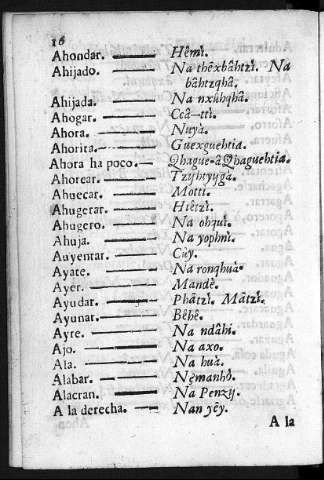 16
Ahondar. Hêmì.
Ahijado. Na thêxbâhtzì. Na
bâhtzqhâ.
Ahijada. Na nxûhqhâ.
Ahogar. Ccâ-ttì.
Ahora. Nuyà.
Ahorita. Guexguehtia.
Ahora ha poco. Qhague-âQhaguehtia.
Ahorcar. Tzÿhtyÿgà.
Ahuecar. Mottì.
Ahugerar. Hiêtzì.
Ahugero. Na ohquì.
Ahuja. Na yophnì.
Auyentar. Cùy.
Ayate. Na ronqhuà.
Ayer. Mandè.
Ayudar. Phâtzì. Mâtzì.
Ayunar. Bêhê.
Ayre. Na ndâhi.
Ajo. Na axo.
Ala. Na huà.
Alabar. Nêmanhô.
Alacran. Na Penzÿ.
A la derecha. Nan yêy.
A la